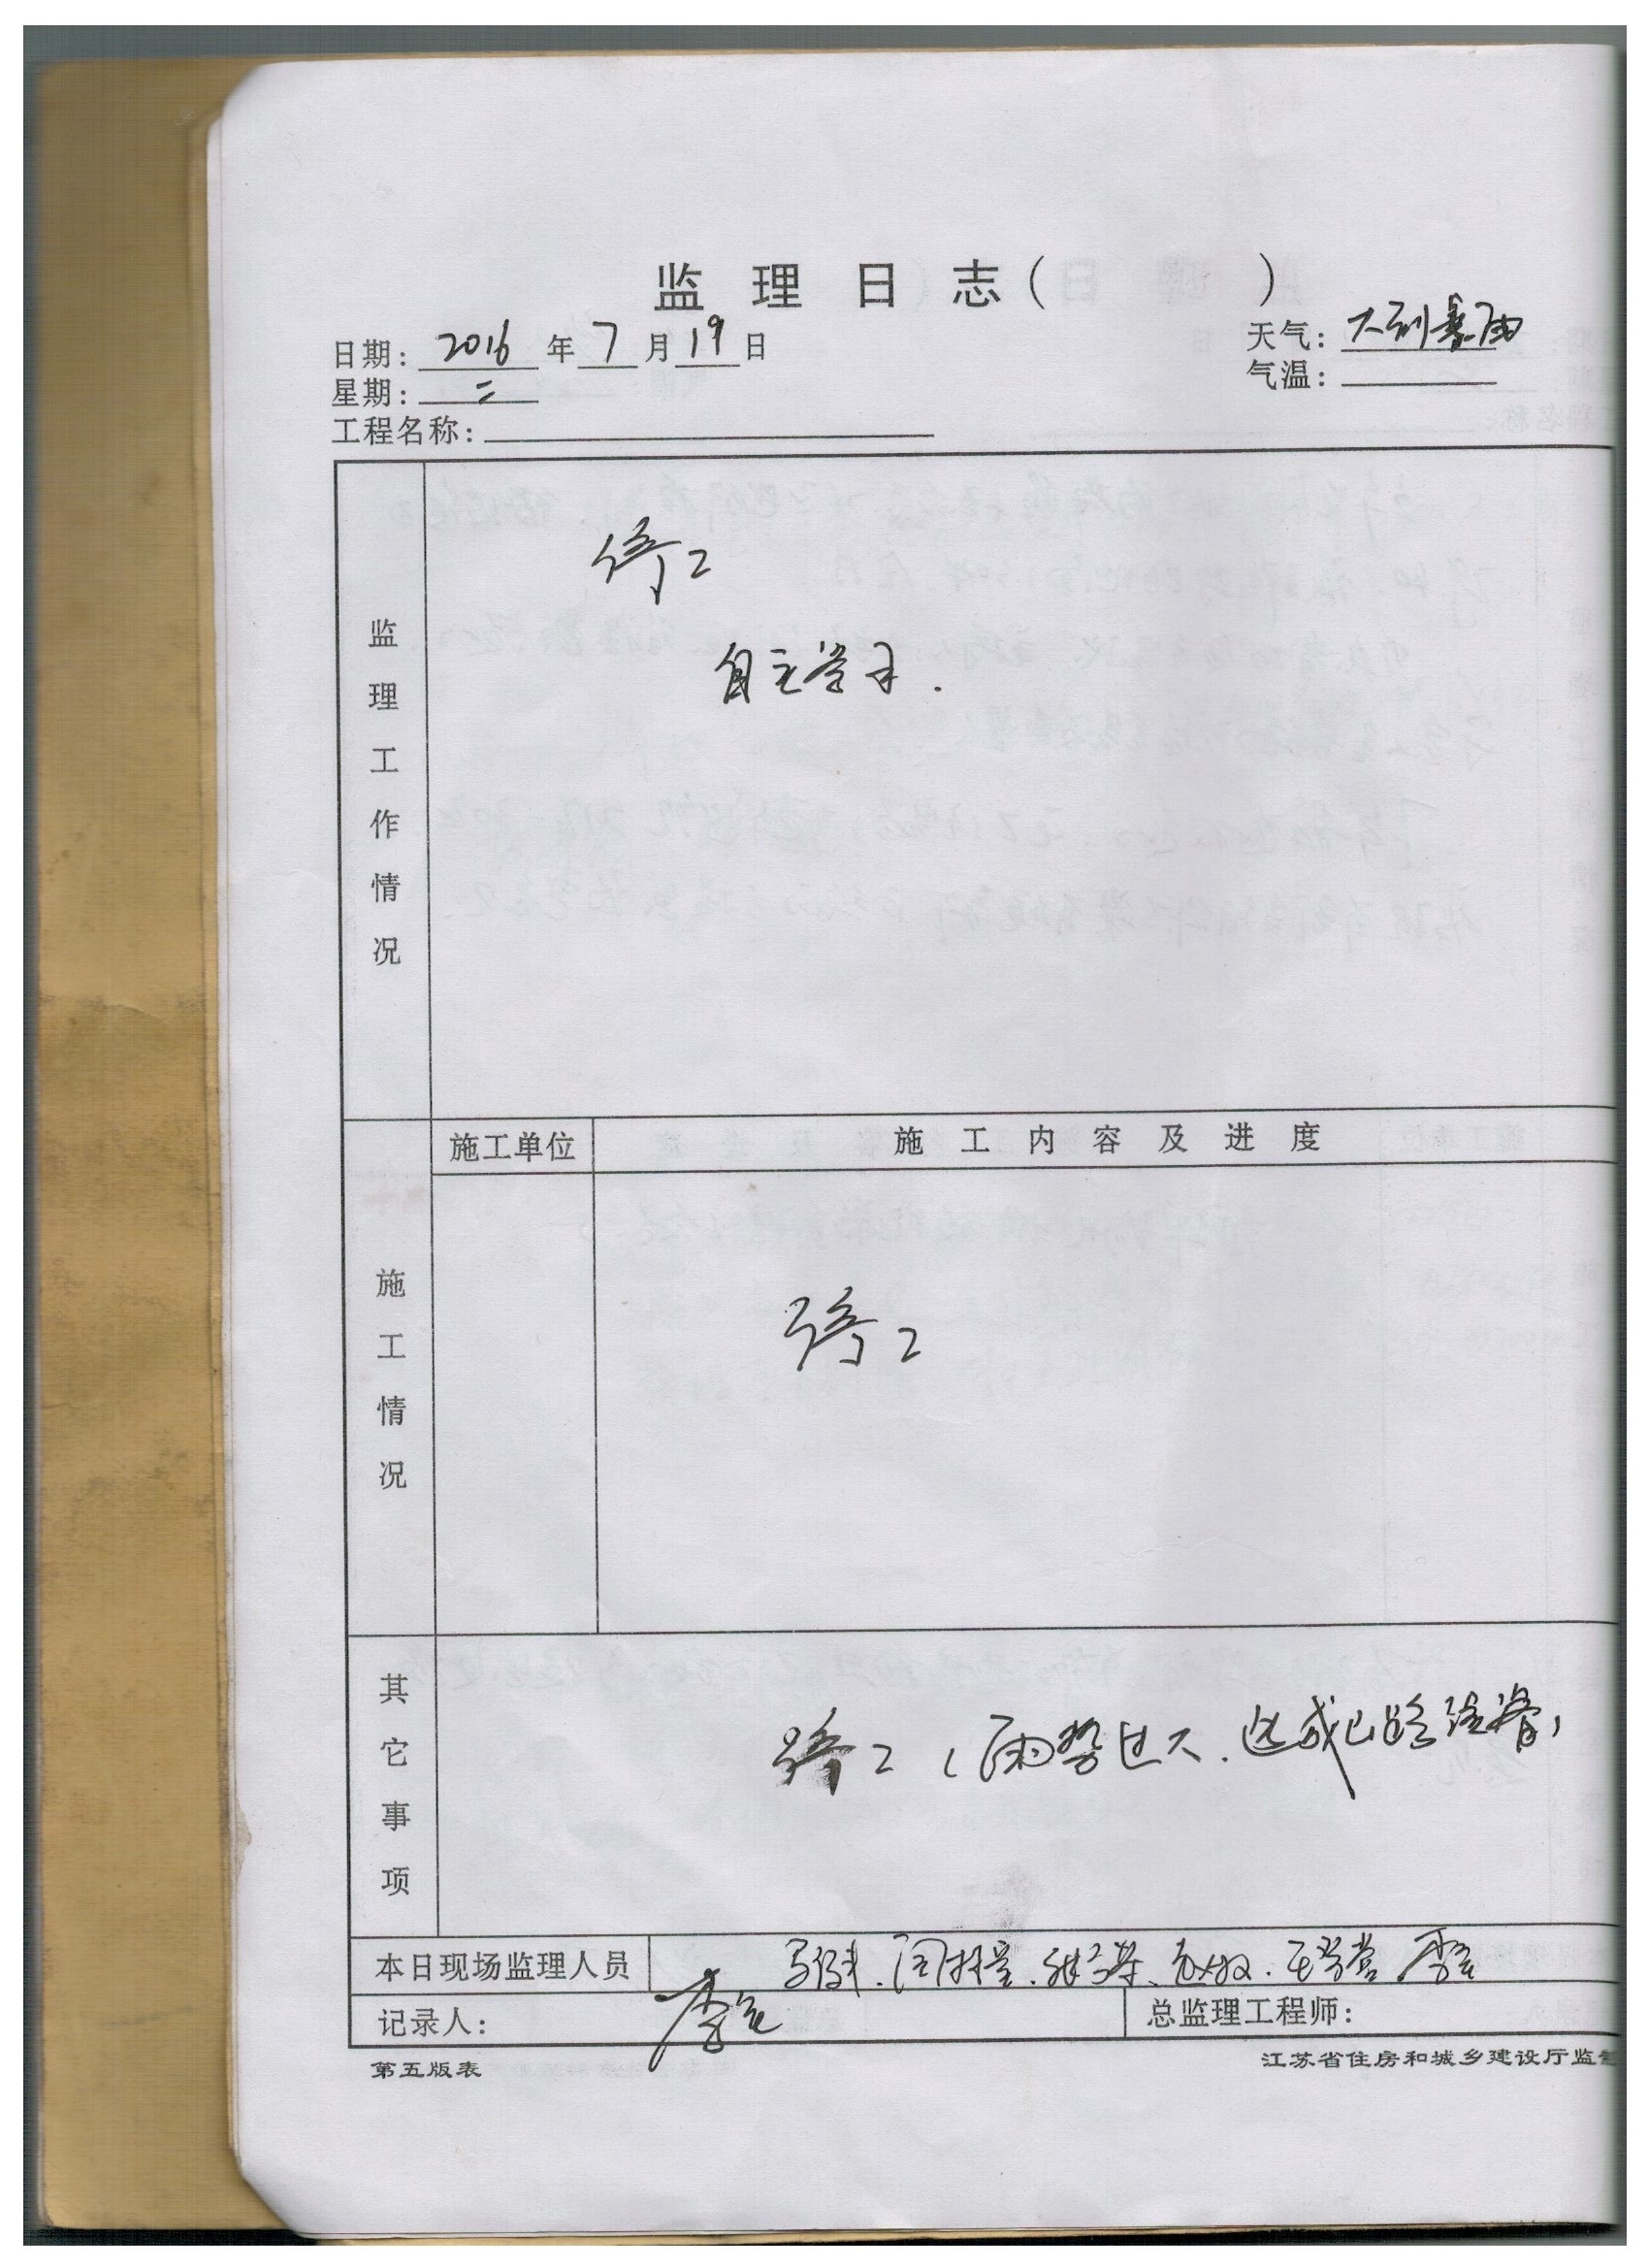 监理日志（ ）
日期： 2016 年 7 月 19 日
天气： 大到暴雨
星期： 二
气温：
工程名称：
监理工作情况
停工
自主学习.
施工单位 施工内容及进度
施工情况
停工
其它事项
停工（雨势过大.造成已路
本日现场监理人员
记录人： 总监理工程师：
第五版表 江苏省住房和城乡建设厅监制